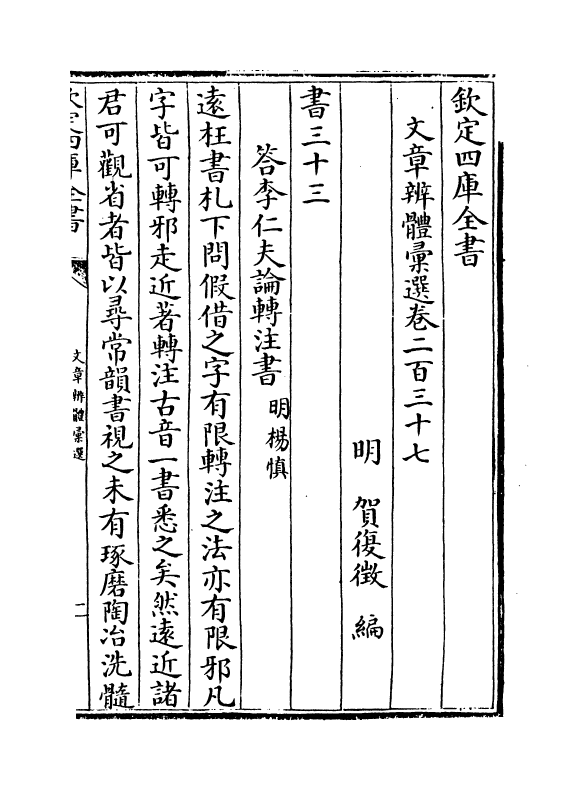 欽定四庫全書
文章辨體彙選卷二百三十七
明 賀復徵 編
書三十三
答李仁夫論轉注書 明楊慎
遠枉書札下問假借之字有限轉注之法亦有限邪凡
字皆可轉邪走近著轉注古音一書悉之矣然遠近諸
君可觀省者皆以尋常韻書視之未有琢磨陶冶洗髓
欽定四庫全書
文章辨體彙選